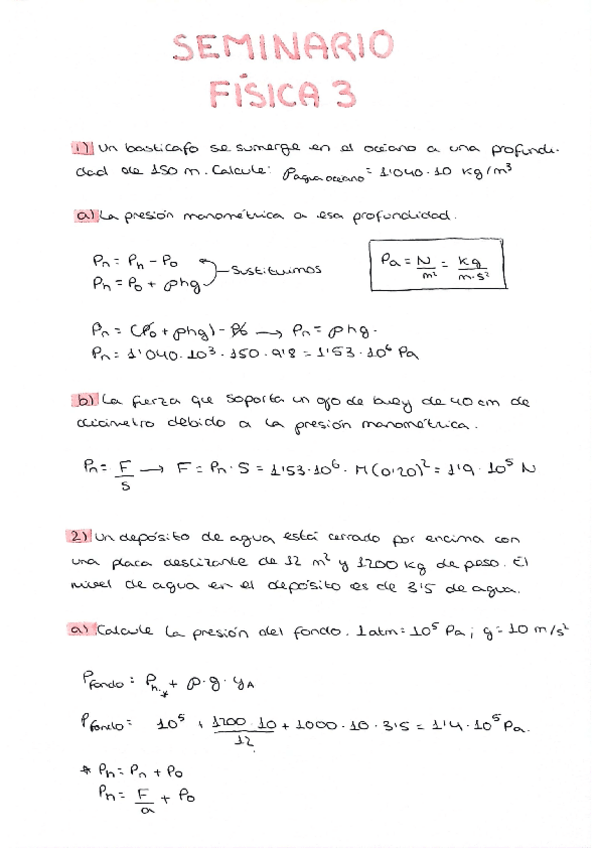 SEMINARIO
FÍSICA 3
1) Un basticafo se sumerge en el océano a una profundi-
dad de 150 m. Calcule: ρagua oceano = 1'040·10 kg/m³
a) La presión manométrica a esa profundidad.
Pn = Ph - Po
Pn = Po + ρhg
Sustituimos
Pa = N/m² = kg/m·s²
Pn = (Po + ρhg) - Po → Pn = ρhg.
Pn = 1'040·10³·150·9'8 = 1'53·10⁶ Pa
b) La fuerza que soporta un ojo de buey de 40 cm de
diámetro debido a la presión manométrica.
Pn = F/S → F = Pn·S = 1'53·10⁶·π(0'20)² = 1'9·10⁵ N
2) Un depósito de agua está cerrado por encima con
una placa deslizante de 12 m² y 1200 kg de peso. El
nivel de agua en el depósito es de 3'5 de agua.
a) Calcule la presión del fondo. 1atm = 10⁵ Pa; g = 10 m/s²
Pfondo = Ph* + ρ·g·yA
Pfondo = 10⁵ + 1200·10/12 + 1000·10·3'5 = 1'4·10⁵ Pa.
* Ph = Pn + Po
Ph = F/a + Po